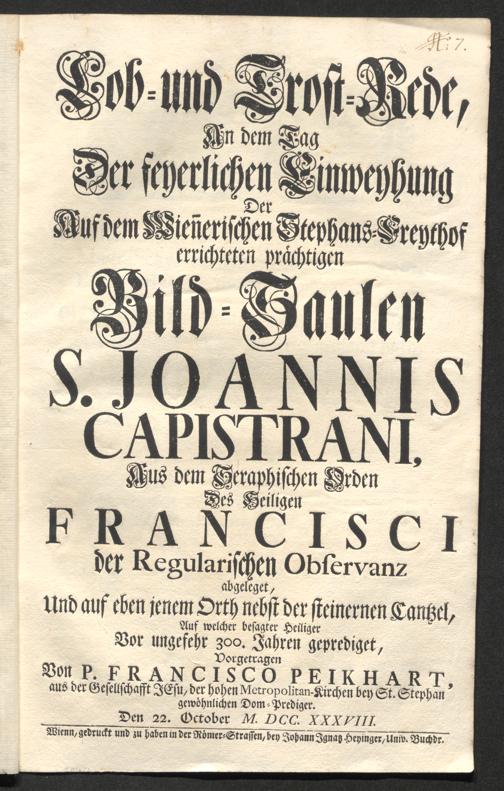 N: 7.
Lob-und Trost-Rede,
An dem Tag
Der feyerlichen Einweyhung
Der
Auf dem Wien̄erischen Stephans-Freythof
errichteten prächtigen
Bild-Saulen
S. JOANNIS
CAPISTRANI,
Aus dem Seraphischen Orden
Des Heiligen
FRANCISCI
der Regularischen Observanz
abgeleget,
Und auf eben jenem Orth nebst der steinernen Cantzel,
Auf welcher besagter Heiliger
Vor ungefehr 300. Jahren geprediget,
Vorgetragen
Von P. FRANCISCO PEIKHART,
aus der Gesellschafft JEsu, der hohen Metropolitan-Kirchen bey St. Stephan
gewöhnlichen Dom-Prediger.
Den 22. October M. DCC. XXXVIII.
Wienn, gedruckt und zu haben in der Römer-Strassen, bey Johann Ignatz Heyinger, Univ. Buchdr.